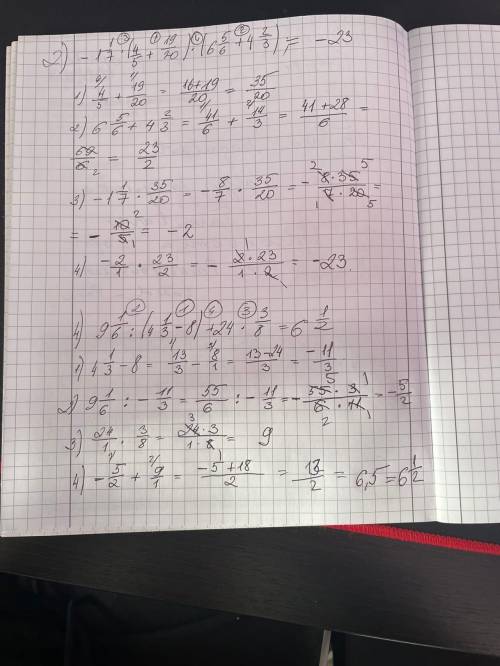 2) -1 1/7 · (4/5 + 19/20) · (6 5/6 + 4 2/3) = -23
1) 4/5 + 19/20 = 16+19/20 = 35/20
2) 6 5/6 + 4 2/3 = 41/6 + 14/3 = 41+28/6 =
69/6 = 23/2
3) -1 1/7 · 35/20 = -8/7 · 35/20 = - 8·35/7·20 =
= - 10/5 = -2
4) -2/1 · 23/2 = - 2·23/1·2 = -23
4) 9 1/6 : (4 1/3 - 8) + 24 · 3/8 = 6 1/2
1) 4 1/3 - 8 = 13/3 - 8/1 = 13-24/3 = -11/3
2) 9 1/6 : - 11/3 = 55/6 : - 11/3 = - 55·3/6·11 = -5/2
3) 24/1 · 3/8 = 24·3/1·8 = 9
4) - 5/2 + 9/1 = -5+18/2 = 13/2 = 6,5 = 6 1/2